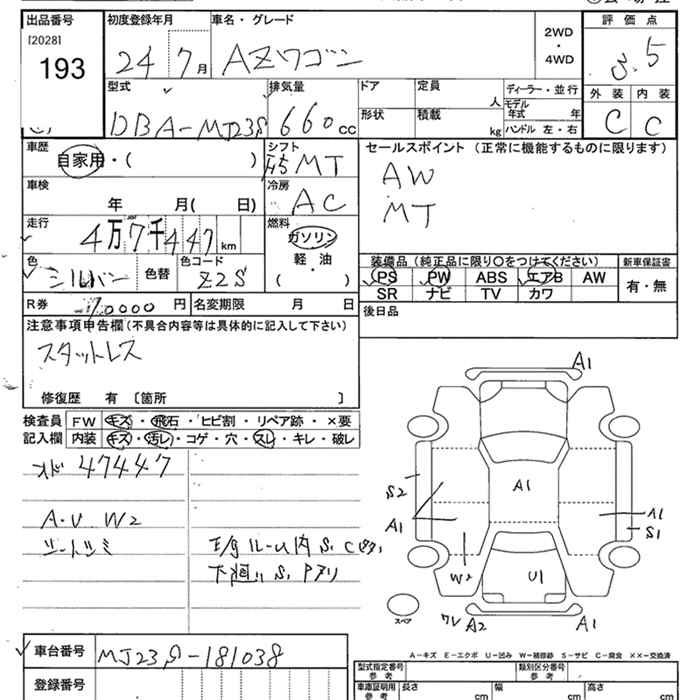 出品番号 初度登録年月 車名・グレード 2WD・4WD 評価点
[2028] 193 24 7月 AZワゴン 3.5
外装 内装
C C
型式 排気量 ドア 定員 人 ディーラー・並行
DBA-MJ23S 660cc 形状 積載 kg モデル年式 年
ハンドル 左・右
車歴 シフト セールスポイント (正常に機能するものに限ります)
自家用・( ) F5 MT AW
車検 冷房 MT
年 月( 日) AC
走行 燃料
4万7千447km ガソリン
軽・油
・
( )
色 色替 色コード 装備品 (純正品に限り○をつけてください) 新車保証書
シルバー Z2S PS PW ABS エアB AW 有・無
SR ナビ TV カワ
R券 円 名変期限 月 日 後日品
注意事項申告欄 (不具合内容等は具体的に記入して下さい)
スタットレス
修復歴 有 〔箇所 〕
検査員 FW キズ・飛石・ヒビ割・リペア跡・×要
記入欄 内装 キズ・汚レ・コゲ・穴・スレ・キレ・破レ
メド 47447
A・U W2
シートツミ
E/gルーム内 S1 C
下廻り S1 Pアリ
A1
S2
A1
A1
A1
S1
W2
U1
スペア
ワレ A2
A1
A-キズ E-エクボ U-凹み W-補修跡 S-サビ C-腐食 ××-交換済
車台番号 MJ23S-181038 型式指定番号 参考 類別区分番号 参考
登録番号 車庫証明用 参考 長さ cm 幅 cm 高さ cm